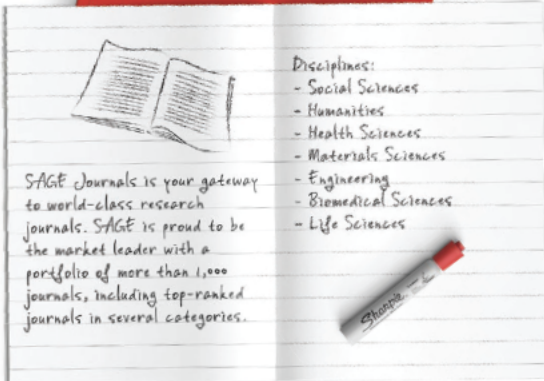 SAGE Journals is your gateway
to world-class research
journals. SAGE is proud to be
the market leader with a
portfolio of more than 1,000
journals, including top-ranked
journals in several categories.
Disciplines:
- Social Sciences
- Humanities
- Health Sciences
- Materials Sciences
- Engineering
- Biomedical Sciences
- Life Sciences
Sharpie